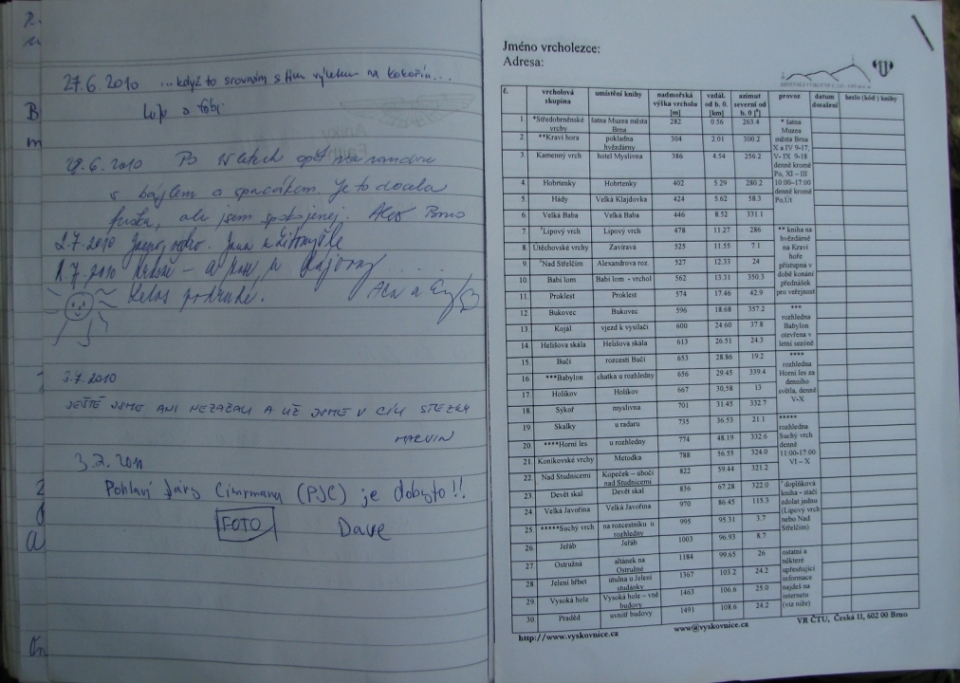 27.6.2010 ...když to srovnám s tím výletem na Kokořín...
28.6.2010 Po 15 letech opět na vandru
s báglem a spacákem. Je to docela
ale jsem spokojenej. Aleš Brno
2.7.2010
1.7.2010
podruhé.
3.7.2010
JEŠTĚ JSME ANI NEZAČALI A UŽ JSME V CÍLI STEZKY
MARVIN
3.7.2010
Pohlaví Járy Cimrmana (PJC) je dobyto!!
FOTO
Dave
Jméno vrcholezce:
Adresa:
č. vrcholová skupina umístění knihy nadmořská výška vrcholu [m] vzdál. od b. 0. [km] azimut severní od b. 0 [°] provoz datum dosažení heslo (kód) knihy
1. *Středobrněnské vrchy šatna Muzea města Brna 282 0.56 263.4
2. **Kraví hora pokladna hvězdárny 304 2.01 300.2
3. Kamenný vrch hotel Myslivna 386 4.54 250.2
4. Hobrtenky Hobrtenky 402 5.29 280.2
5. Hády Velká Klajdovka 424 5.62 58.3
6. Velká Baba Velká Baba 446 8.52 331.1
7. °Lipový vrch Lipový vrch 478 11.27 286
8. Útěchovské vrchy Zavírava 525 11.55 7.1
9. °Nad Střelčím Alexandrova roz. 527 12.33 24
10. Babí lom Babí lom - vrchol 562 13.31 350.3
11. Proklest Proklest 574 17.46 42.9
12. Bukovec Bukovec 596 18.68 357.2
13. Kojál vjezd k vysílači 600 24.60 37.8
14. Helišova skála Helišova skála 613 26.51 24.3
15. Bučí rozcestí Bučí 653 28.86 19.2
16. ***Babylon chatka u rozhledny 656 29.45 339.4
17. Holíkov Holíkov 667 30.58 13
18. Sýkoř myslivna 701 31.45 332.7
19. Skalky u radaru 735 36.53 21.1
20. ****Horní les u rozhledny 774 48.19 332.6
21. Kamíkovské vrchy Metodka 788 56.55 324.0
22. Nad Studnicemi Kopeček – úbočí nad Studnicemi 822 59.44 321.2
23. Devět skal Devět skal 836 67.28 322.0
24. Velká Javořina Velká Javořina 970 86.45 115.3
25. *****Suchý vrch na rozcestníku u rozhledny 995 95.31 3.7
26. Jeřáb Jeřáb 1003 96.93 8.7
27. Ostružná altánek na Ostružné 1184 99.65 26
28. Jelení hřbet útulna u Jelení studánky 1367 103.2 24.2
29. Vysoká hole Vysoká hole – vně budovy 1463 106.6 25.0
30. Praděd uvnitř budovy 1491 108.6 24.2
* šatna
Muzea
města Brna
X a IV 9-17,
V- IX 9-18
denně kromě
Po, XI – III
10:00–17:00
denně kromě
Po,Út
** kniha na
hvězdárně
na Kraví
hoře
přístupná v
době konání
přednášek
pro veřejnost
***
rozhledna
Babylon
otevřena v
letní sezóně
****
rozhledna
Horní les za
denního
světla, denně
V-X
*****
rozhledna
Suchý vrch
denně
11:00-17:00
VI – X
° doplňková
kniha - stačí
zdolat jednu
(Lipový vrch
nebo Nad
Střelčím)
ostatní a
některé
upřesňující
informace
najdeš na
internetu
(viz níže)
http://www.vyskovnice.cz www@vyskovnice.cz VR ČTU, Česká 11, 602 00 Brno